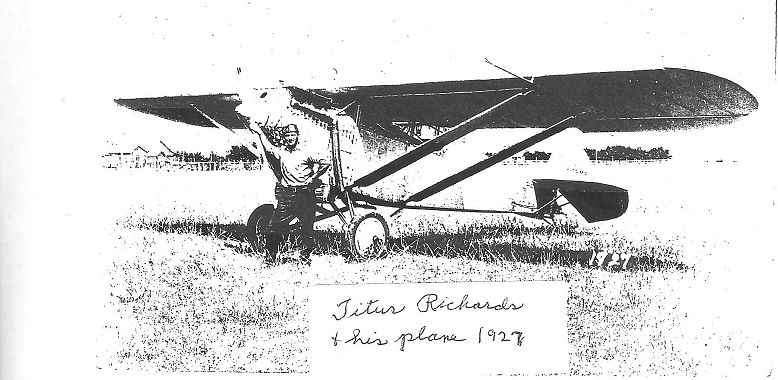 1927
Titus Richards
& his plane 1927